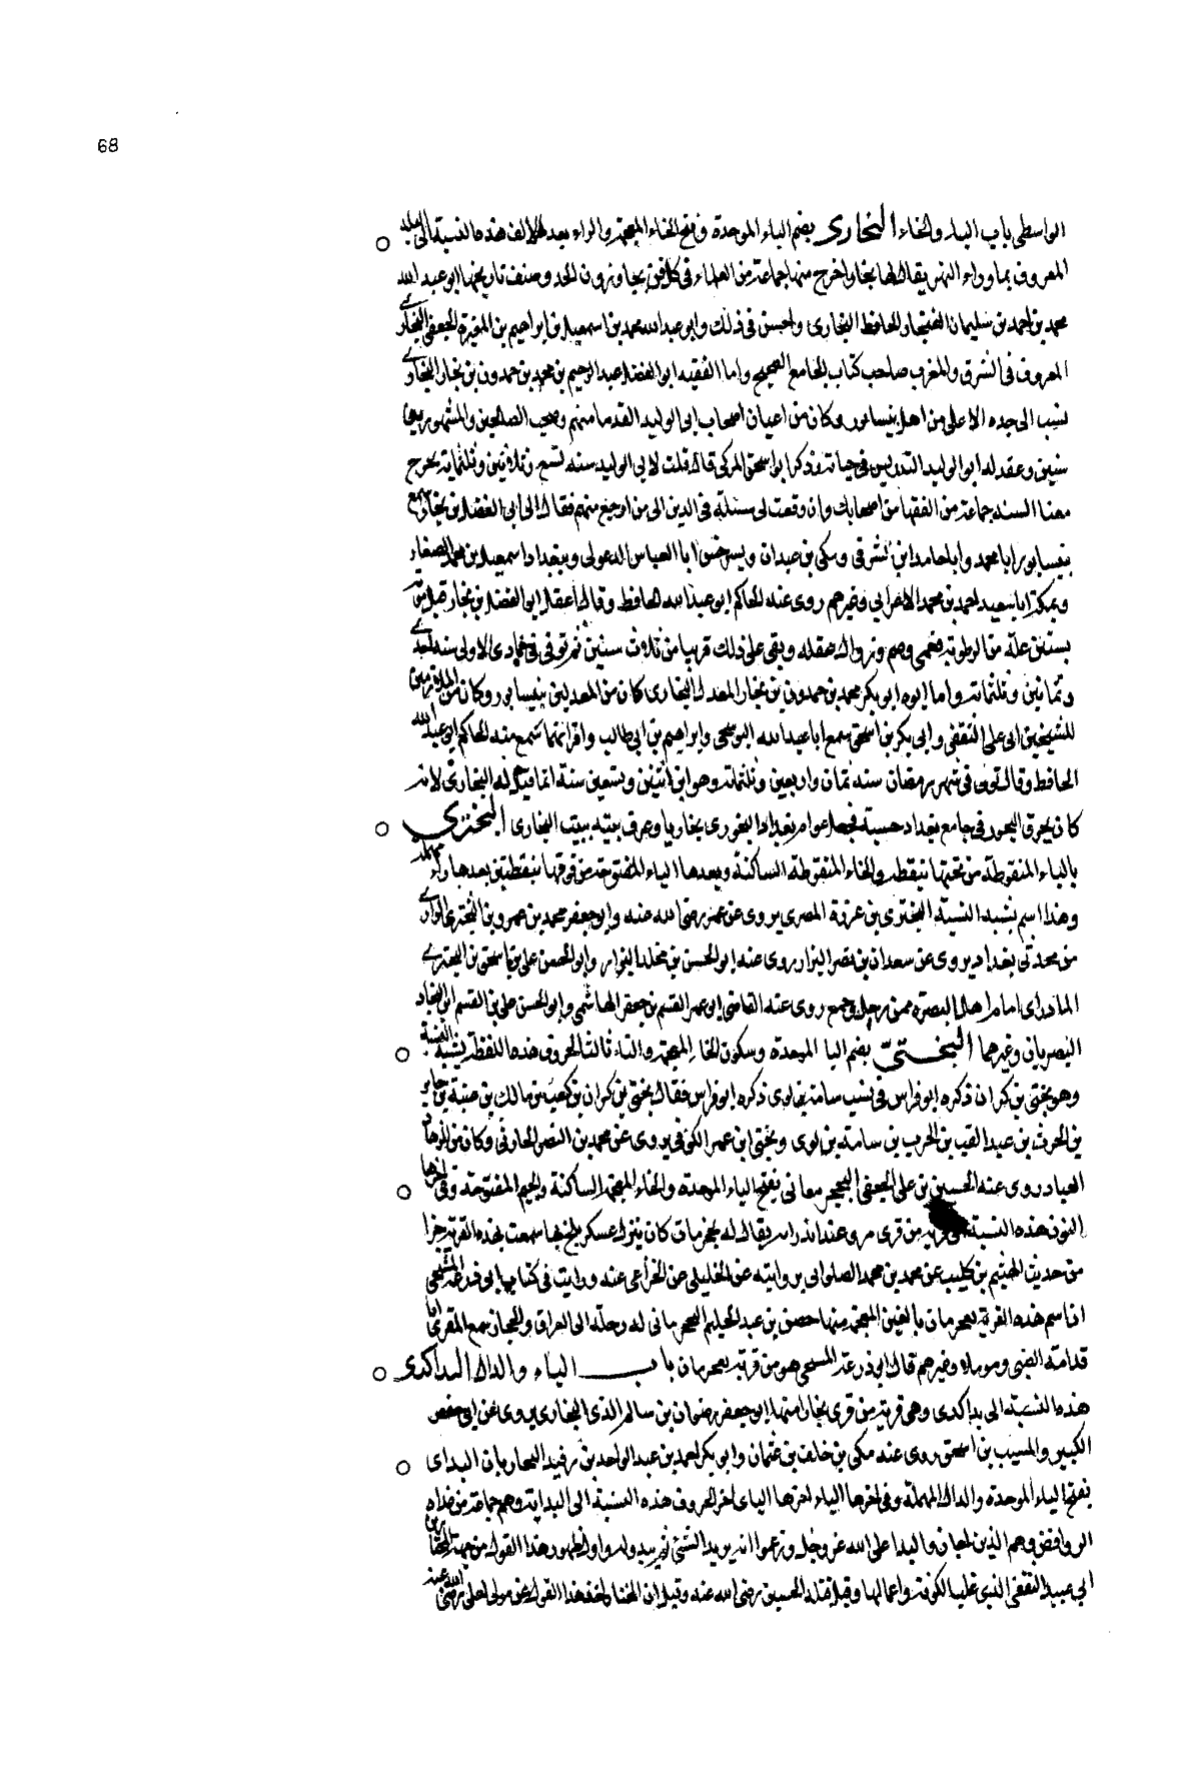 68
الواسطى باب الباء والخاء البخارى بضم الباء الموحدة وفتح الخاء المعجمة والراء بعد الالف هذه النسبة الى البلد
المعروف بماوراء النهر يقال لها بخارا خرج منها جماعة من العلماء فى كل فن يجاوزون الحد وصنف تاريخها ابو عبد الله
محمد بن احمد بن سليمان الغنجار الحافظ البخارى واحسن فى ذلك وابو عبد الله محمد بن اسمعيل بن ابراهيم بن المغيرة الجعفى البخارى
المعروف فى الشرق والمغرب صاحب كتاب الجامع الصحيح واما الفقيه ابو الفضل عبد الرحيم بن محمد بن حمدون بن بخار البخارى
نسب الى جده الاعلى من اهل نيسابور وكان من اعيان اصحاب ابى الوليد القدما منهم وصحب الصالحين والمشهورين
سنين وعقد له ابو الوليد التدريس فى حياته وذكر ابو اسحق المزكى قال قلت لابى الوليد سنة تسع وثلاثين وثلثماية يخرج
معنا السنه جماعة من الفقها من اصحابك وان وقعت لى مسئلة فى الدين الى من ارجع منهم فقال الى ابى الفضل بن بخار سمع
بنيسابور ابا محمد وابا حامد ابن الشرقى ومكى بن عبدان وبسرخس ابا العباس الدغولى وببغداد اسمعيل بن محمد الصفار
وبمكة ابا سعيد احمد بن محمد الاعرابى وغيرهم روى عنه الحاكم ابو عبد الله الحافظ وقال اعقل ابو الفضل بن بخار قبل موته
بسنتين علة من الرطوبة فعمى وصم وزوال عقله وبقى على ذلك قريبا من ثلاث سنين ثم توفى فى جمادى الاولى سنه احدى
وثمانين وثلثمائة واما ابوه ابو بكر محمد بن حمدون بن بخار المعدل البخارى كان من المعدلين بنيسابور وكان من الملازمين
للشيخين ابى على الثقفى وابى بكر بن اسحق سمع ابا عبد الله البوشنجى وابراهيم بن ابى طالب واقرانهما سمع منه الحاكم ابو عبد الله
الحافظ وقال توفى فى شهر رمضان سنه ثمان واربعين وثلثمائة وهو ابن اثنين وستعين سنة انما قيل له البخارى لانه
كان يحرق البخور فى جامع بغداد حسبة فجعل عوام بغداد البخورى بخاريا وعرف بيته ببيت البخارى البخترى
بالباء المنقوطة من تحتها بنقطة والخاء المنقوطة الساكنة وبعدها الياء المفتوحة من فوقها بنقطتين بعدها راء مهملة
وهذا اسم يشبه النسبة البخترى بن عزرة المصرى يروى عن عمر رضى الله عنه وابو جعفر محمد بن عمرو بن البخترى الرزاز
من محدثى بغداد يروى عن سعدان بن نصر البزاز روى عنه ابو الحسن بن مخلد البزاز وابو الحسن على بن اسحق بن البخترى
المادراى امام اهل البصرة ممن رحل وجمع روى عنه القاضى ابو عمر القسم بن جعفر الهاشمى وابو الحسن على بن القسم ابن النجاد
البصريان وغيرهما البختى بضم البا الموحدة وسكون الخاء المعجمة والتاء ثالث الحروف هذه اللفظة يشبه النسبة
وهو بختى بن كران ذكره ابو فراس فى نسب سامة بن لوى ذكره ابو فراس فقال بختى بن كران بن كعب بن مالك بن عتبة بن جابر
بن الحرث بن عبد البيت بن الحرث بن سامة بن لوى وبختى ابن عمر الكوفى يروى عن محمد بن النضر الحارثى وكان من الزهاد
العباد روى عنه الحسين بن على الجعفى البخجرمانى بفتح الباء الموحدة والخاء المعجمة الساكنة والجيم المفتوحة وفى اخرها
النون هذه النسبة الى قرية من قرى مرو عند اندرابه يقال له بخجرمان كان ينزل عسكر بلخ بها سمعت بهذه القرية جزا
من حديث الهيثم بن كليب عن محمد بن محمد الصلواتى بروايته عن الخليلى عن الخزاعى عنه ورايت فى كتاب ابى ذرعة السنجى
ان اسم هذه القرية بغجرمان بالغين المعجمة منها حفص بن عبد الحليم البخجرمانى له رحلة الى العراق والحجاز سمع المقرئ ابا
قدامة الضبى وموسى وغيرهم قال ابو ذرعة السنجى هو من قرية بغجرمان باب الباء والدال البداكدى
هذه النسبة الى بداكدى وهى قرية من قرى بخارا منها ابو جعفر رضوان بن سالم الذى البخارى يروى عن ابى حفص
الكبير والمسيب بن اسحق روى عنه مكى بن خلف بن عثمان وابو بكر احمد بن عبد الواحد بن رفيد البخاريان البداى
بفتح الباء الموحدة والدال المهملة وفى اخرها الياء اخرها الياى اخر الحروف هذه النسبة الى البدائية وهم جماعة من غلاة
الروافض وهم الذين اجازوا البدا على الله عز وجل وزعموا انه يريد الشئ ثم يبدو له واول ظهور هذا القول من جهة المختار بن
ابى عبيد الثقفى الذى غلب الكوفة واعمالها وقيل قتلة الحسين رضى الله عنه وقيل ان المختار اخذ هذا القول عن مولى لعلى رضى الله عنه